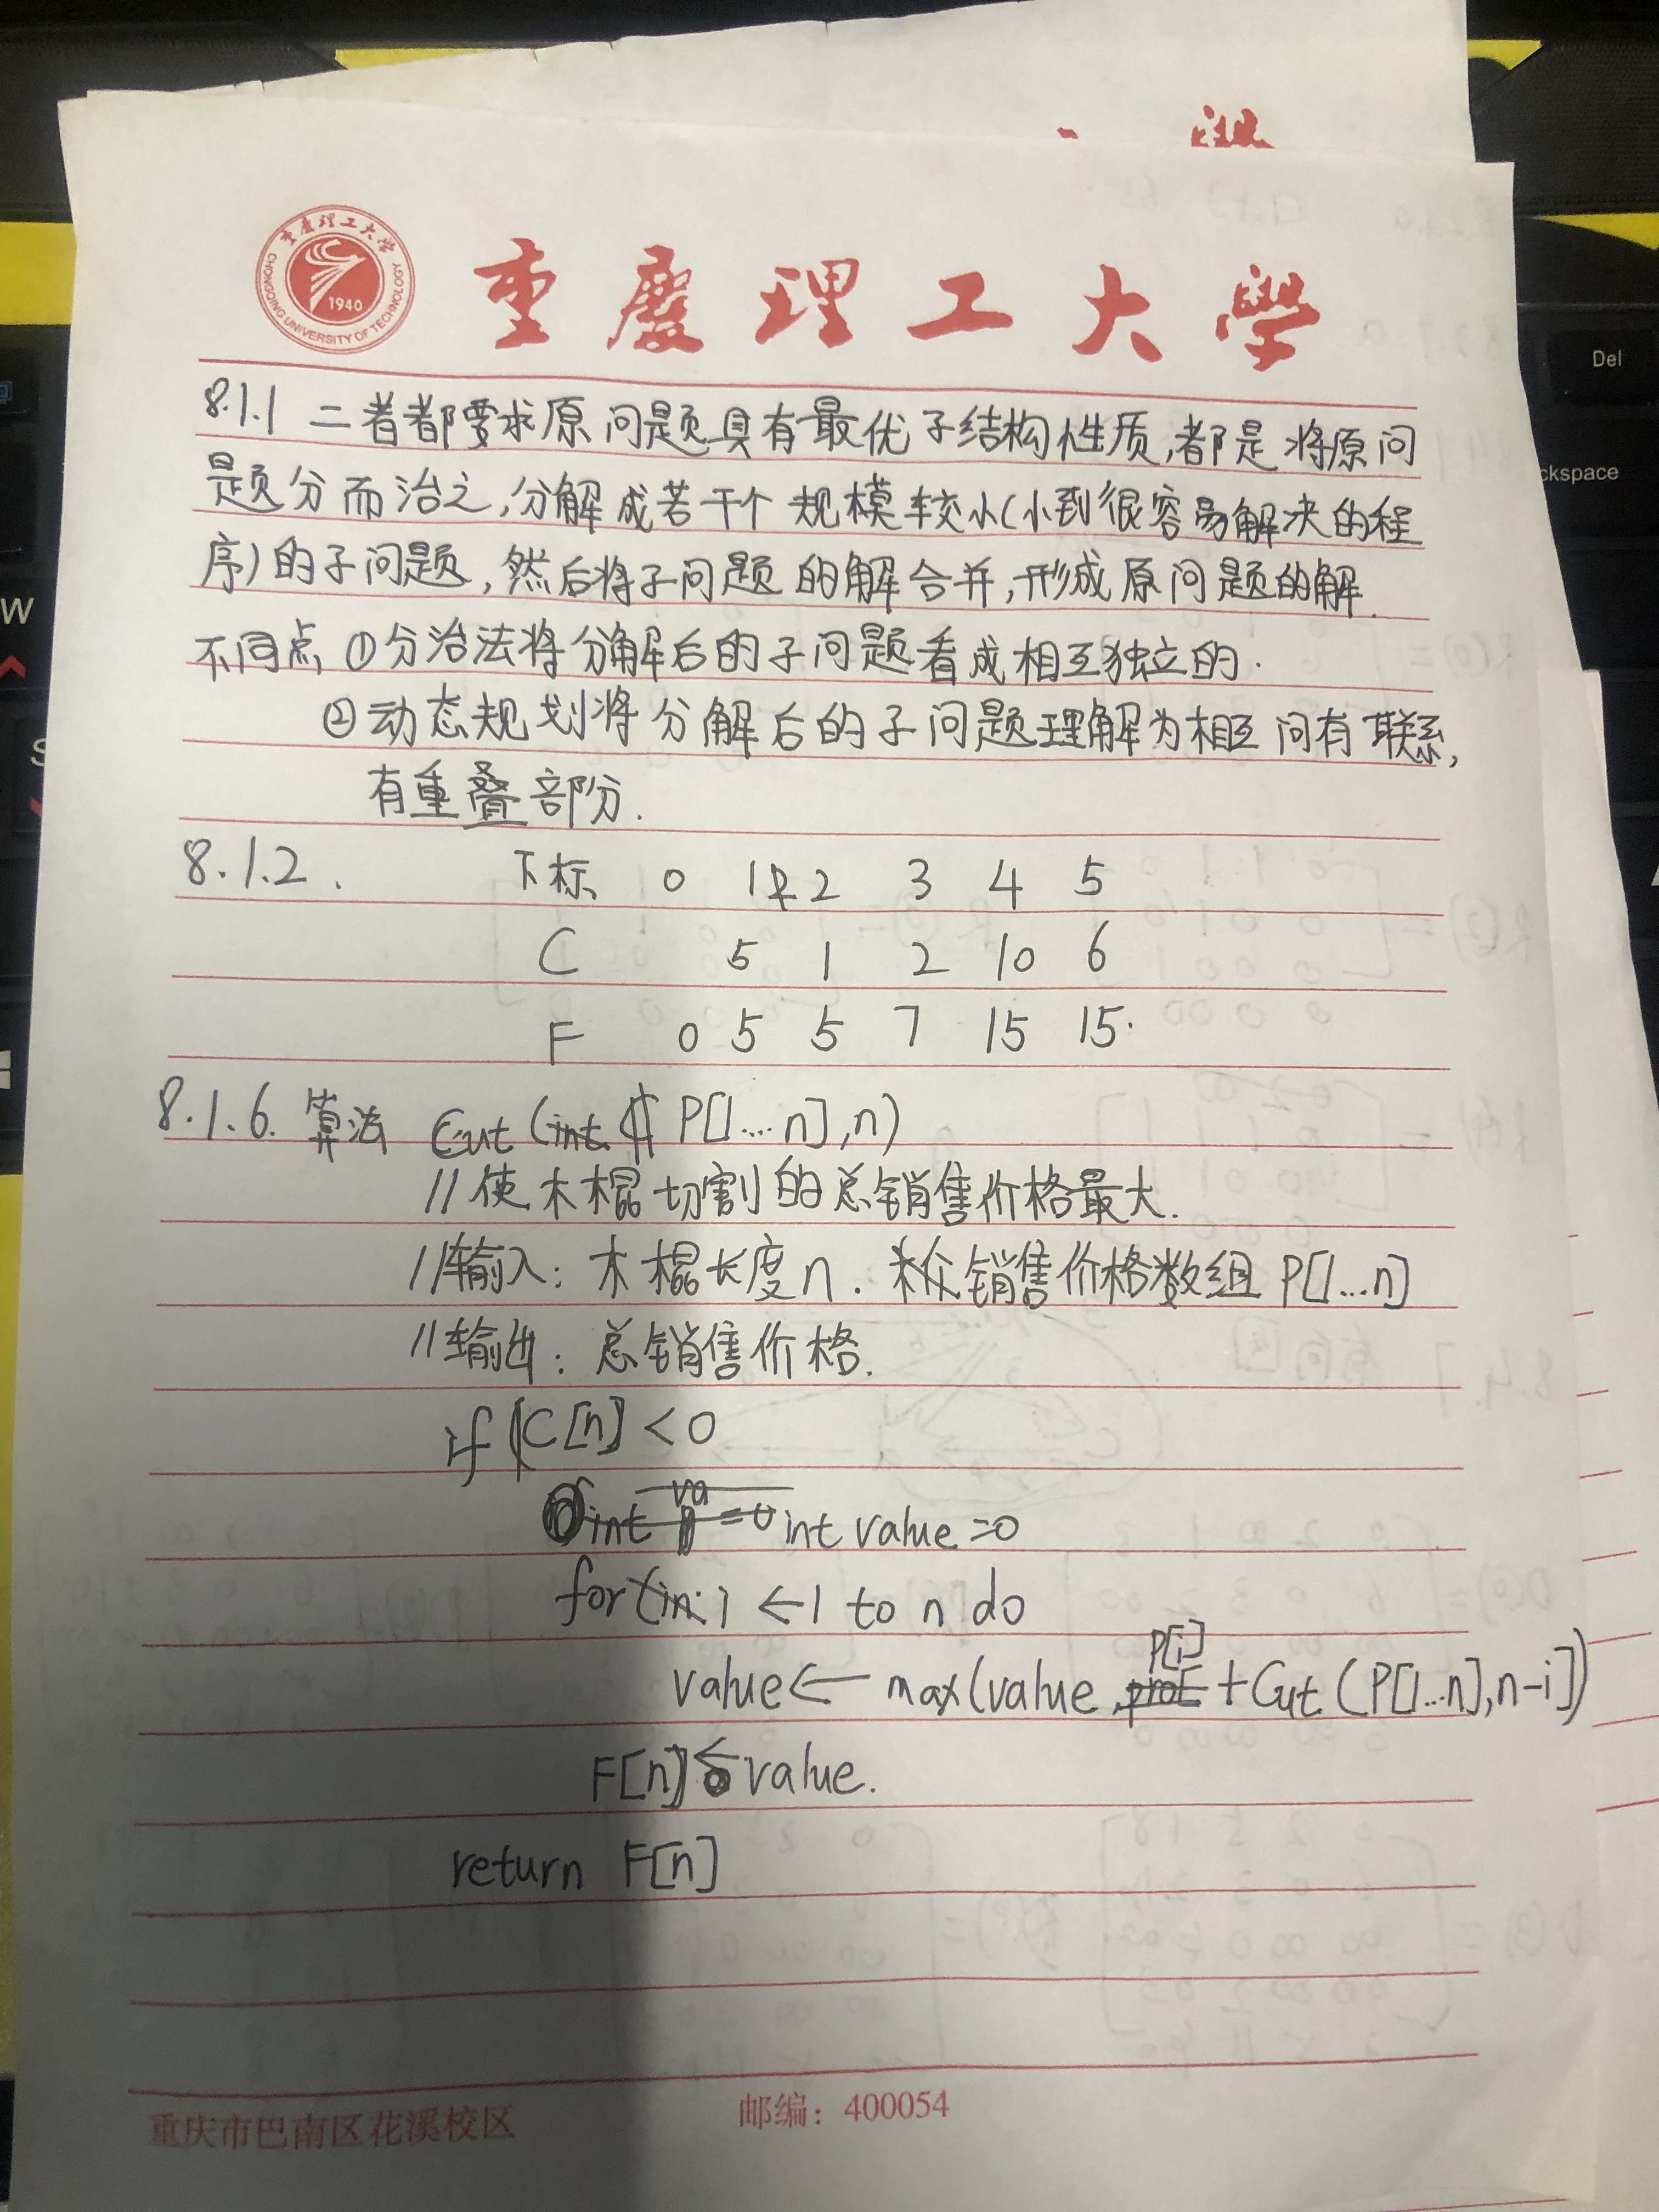 重慶理工大学
CHONGQING UNIVERSITY OF TECHNOLOGY
1940
重慶理工大學
Del
ckspace
W
S
8.1.1 二者都要求原问题具有最优子结构性质,都是将原问
题分而治之,分解成若干个规模较小(小到很容易解决的程
序)的子问题,然后将子问题的解合并,形成原问题的解.
不同点 ①分治法将分解后的子问题看成相互独立的.
②动态规划将分解后的子问题理解为相互间有联系,
有重叠部份.
8.1.2. 下标 0 1 2 3 4 5
C 5 1 2 10 6
F 0 5 5 7 15 15.
8.1.6. 算法 Cut (int P[1...n],n)
//使木棍切割的总销售价格最大.
//输入: 木棍长度n. 销售价格数组 P[1...n]
//输出: 总销售价格.
if C[n] <0
int value =0
for i ←1 to n do
value← max(value, P[i] + Cut (P[1...n],n-i])
F[n]←value.
return F[n]
重庆市巴南区花溪校区 邮编: 400054